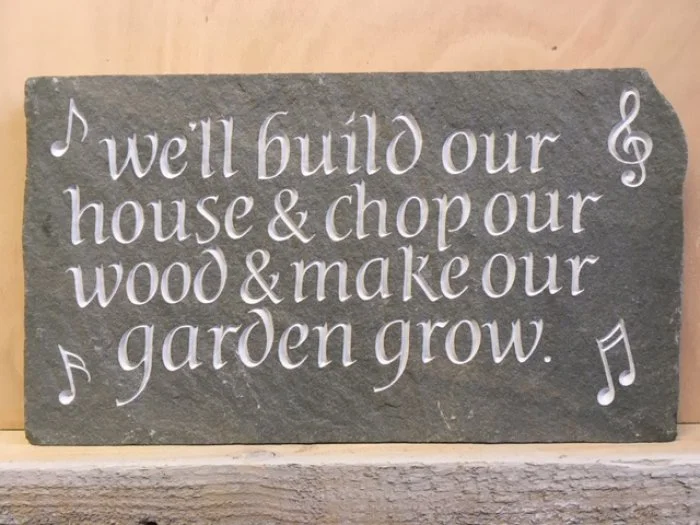 we'll build our
house & chop our
wood & make our
garden grow.